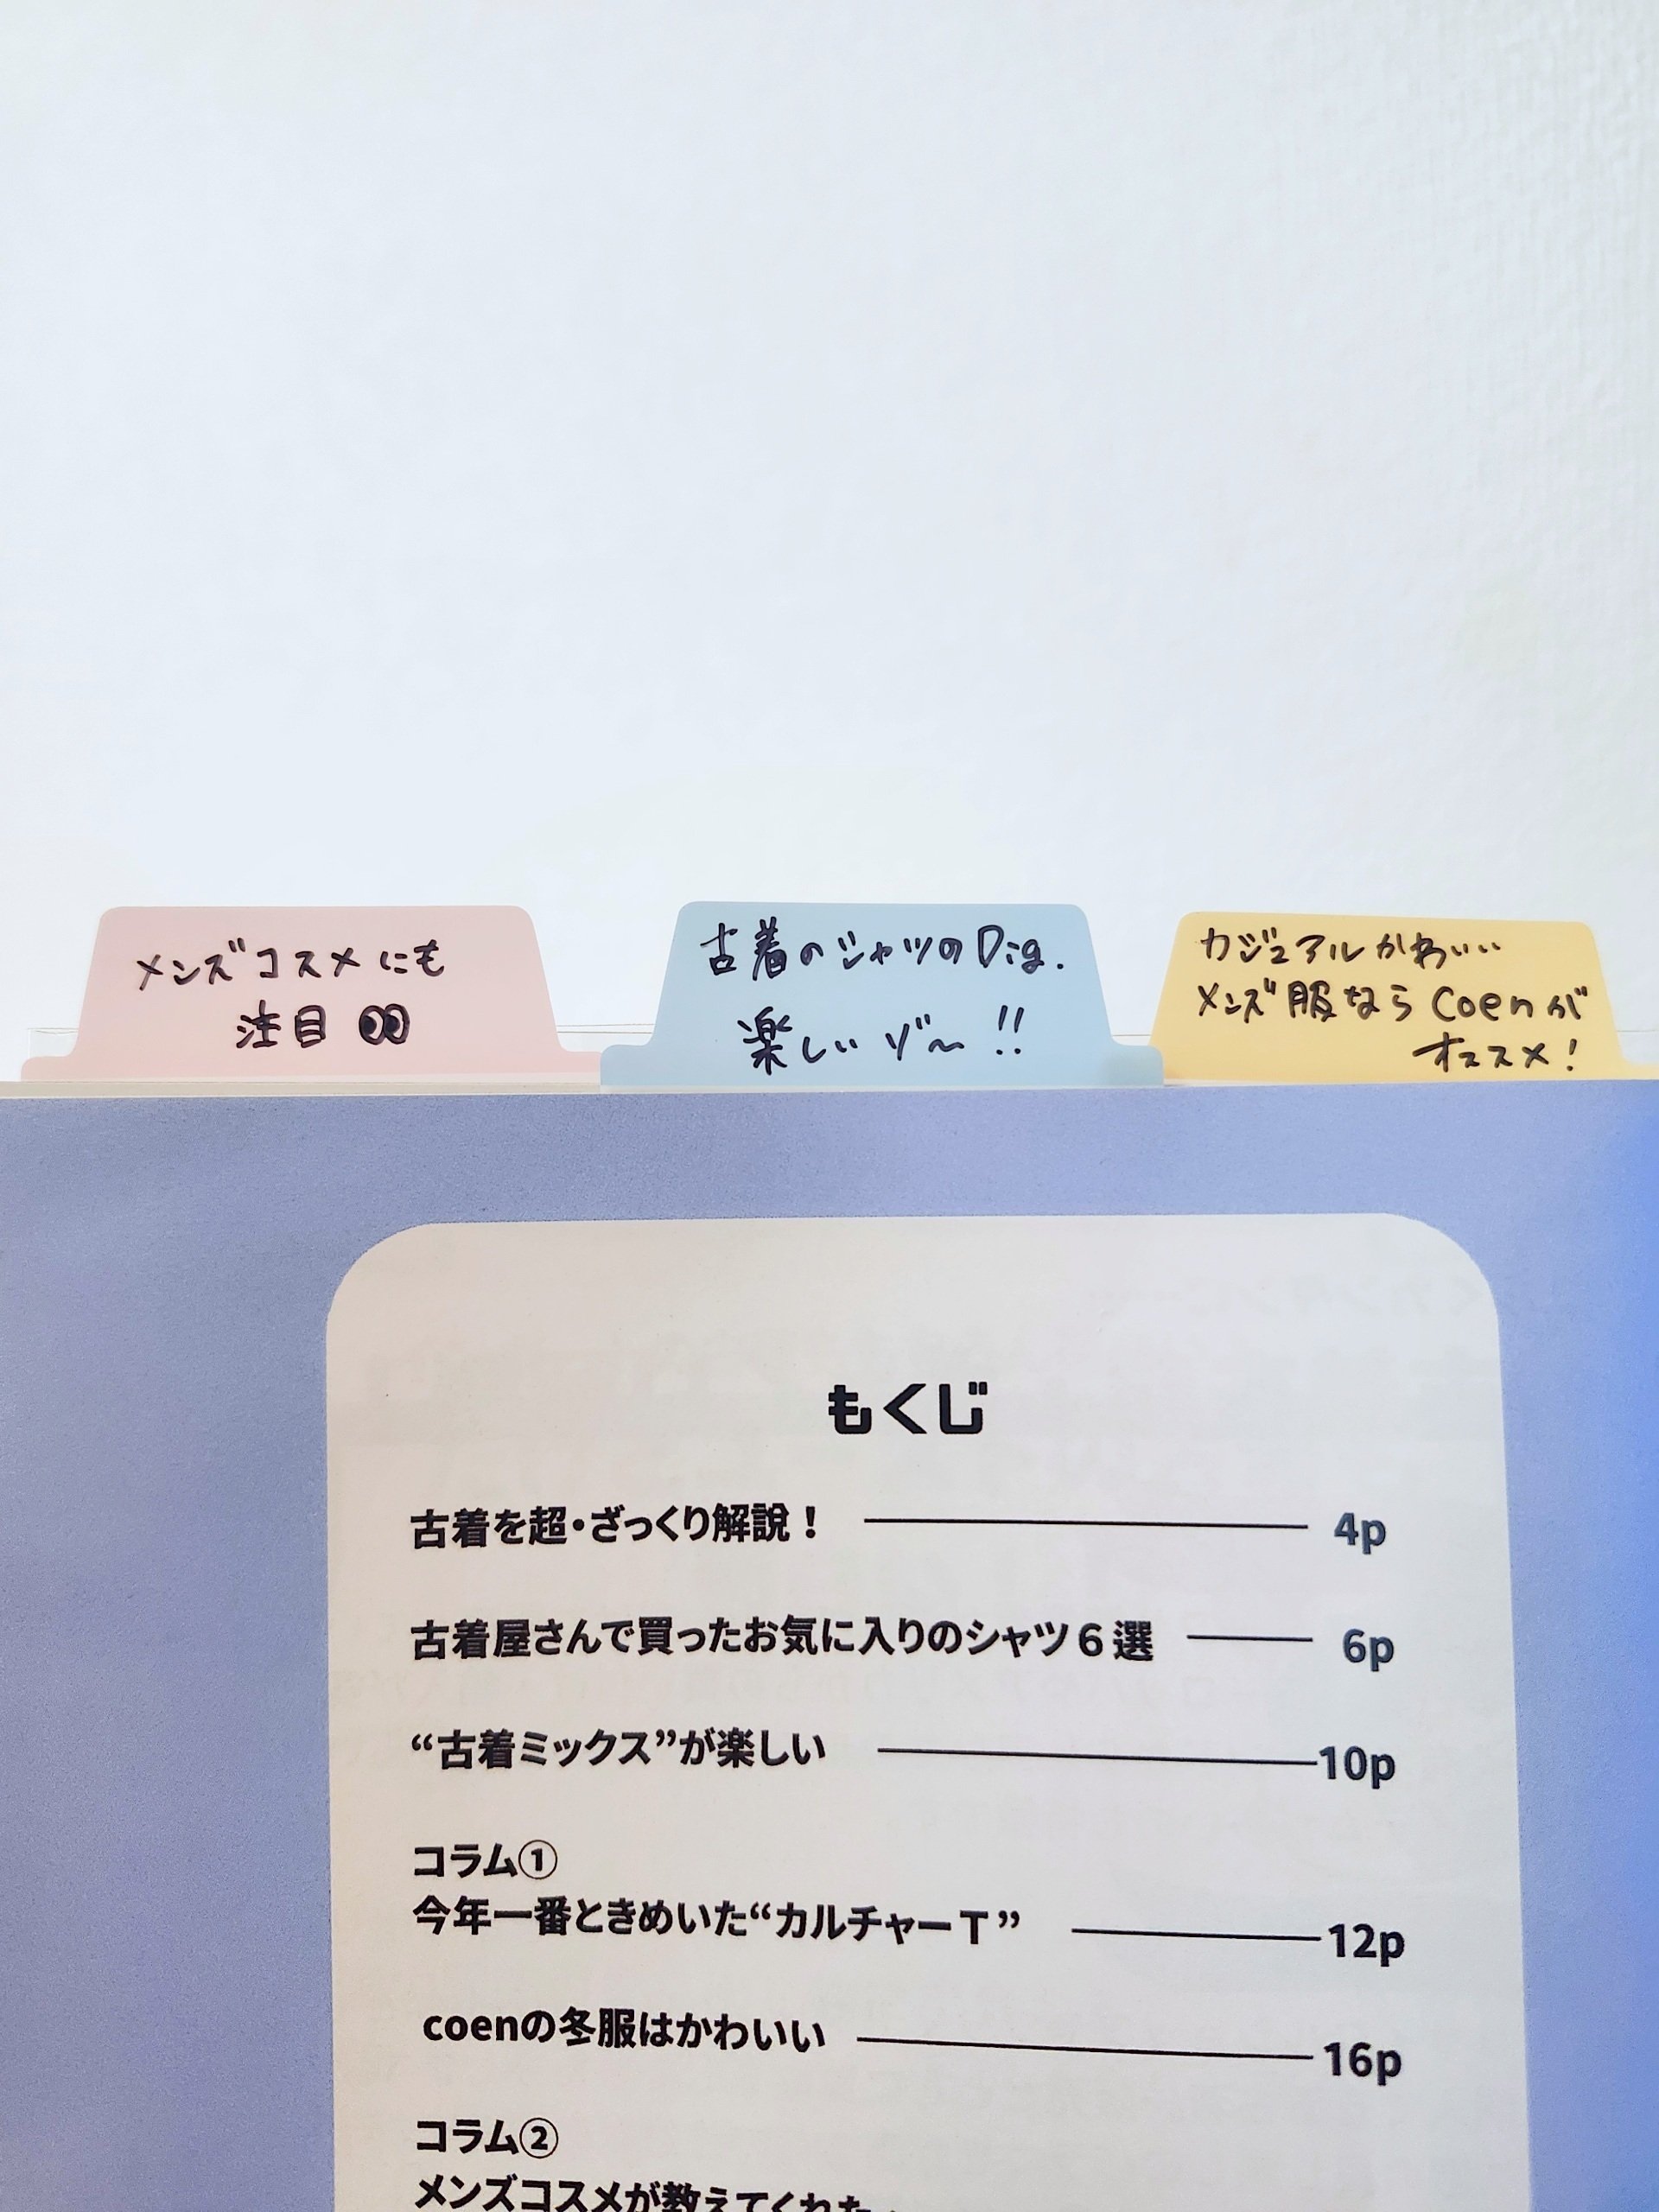 メンズコスメにも
注目 👀
古着のシャツのDig.
楽しいゾ〜!!
カジュアルかわいい
メンズ服なら coenが
オススメ!
もくじ
古着を超・ざっくり解説! 4p
古着屋さんで買ったお気に入りのシャツ6選 6p
“古着ミックス”が楽しい 10p
コラム①
今年一番ときめいた“カルチャーT” 12p
coenの冬服はかわいい 16p
コラム②
メンズコスメが教えてくれた